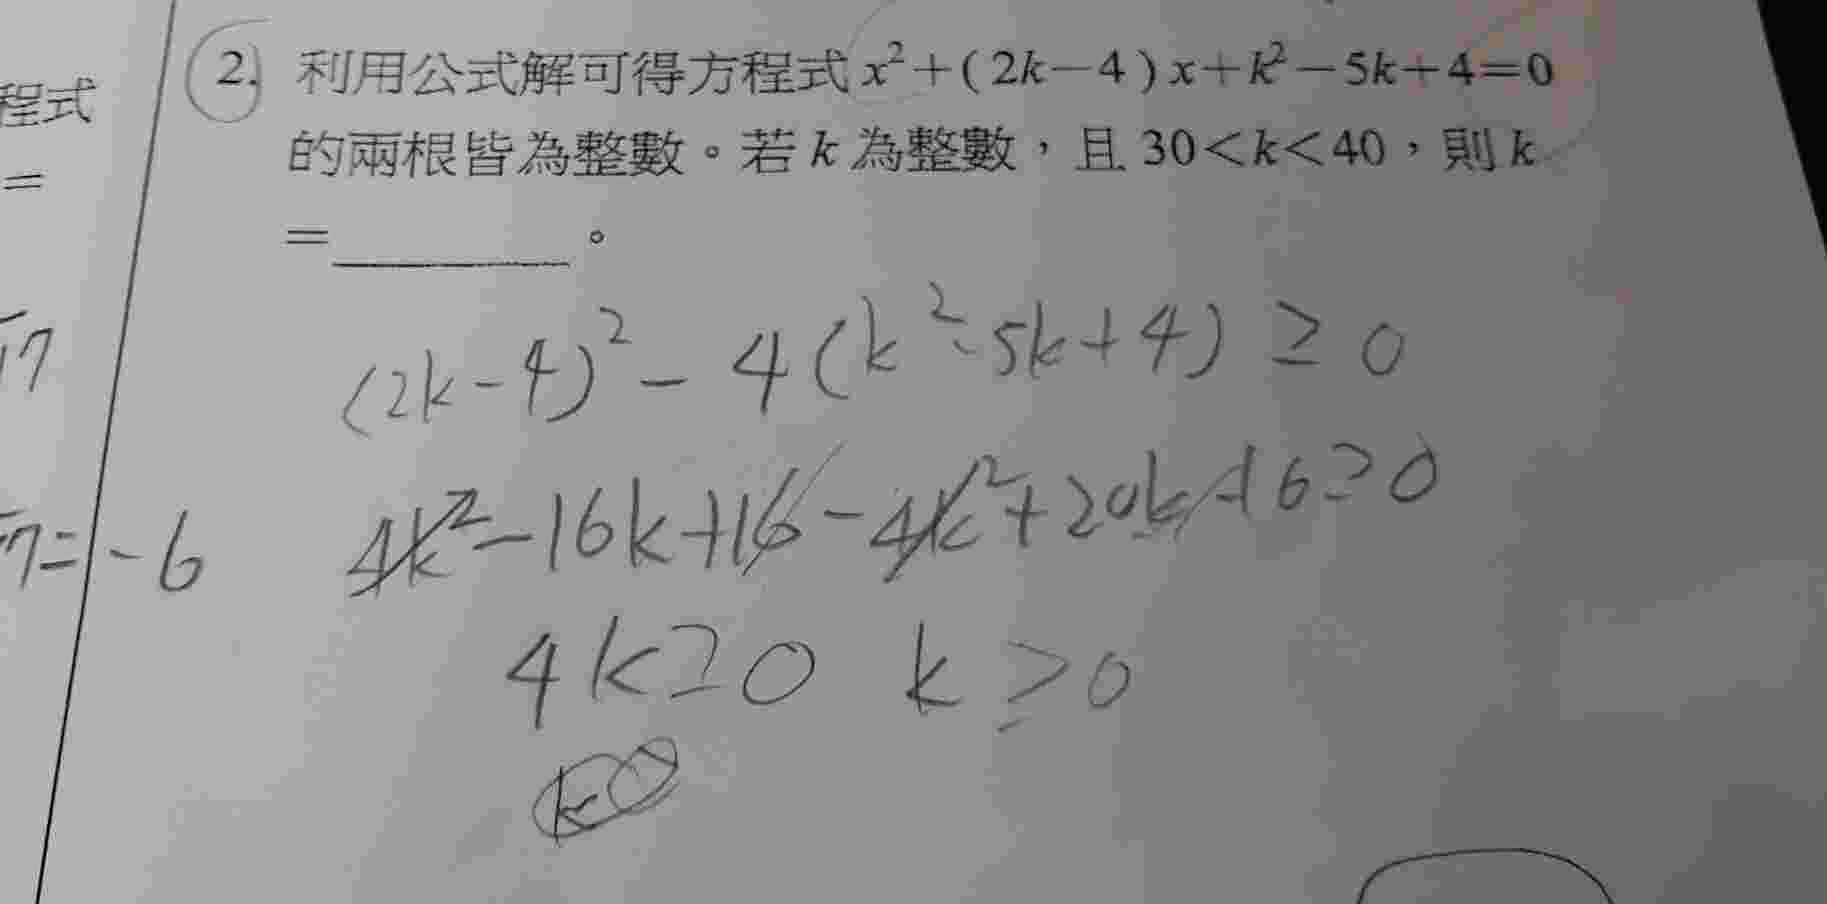 2. 利用公式解可得方程式 x²+(2k-4)x+k²-5k+4=0
的兩根皆為整數。若 k 為整數,且 30<k<40,則 k
=________。
程式
=
17
7=-6
(2k-4)²-4(k²-5k+4)≥0
4k²-16k+16-4k²+20k-16≥0
4k≥0 k≥0